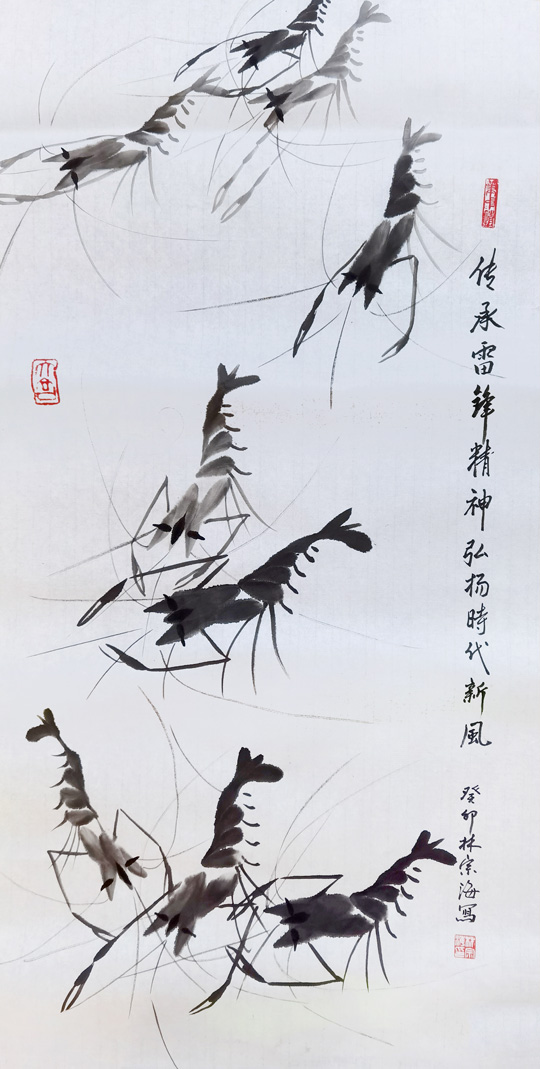 传承雷锋精神弘扬時代新風
癸卯林宗海寫